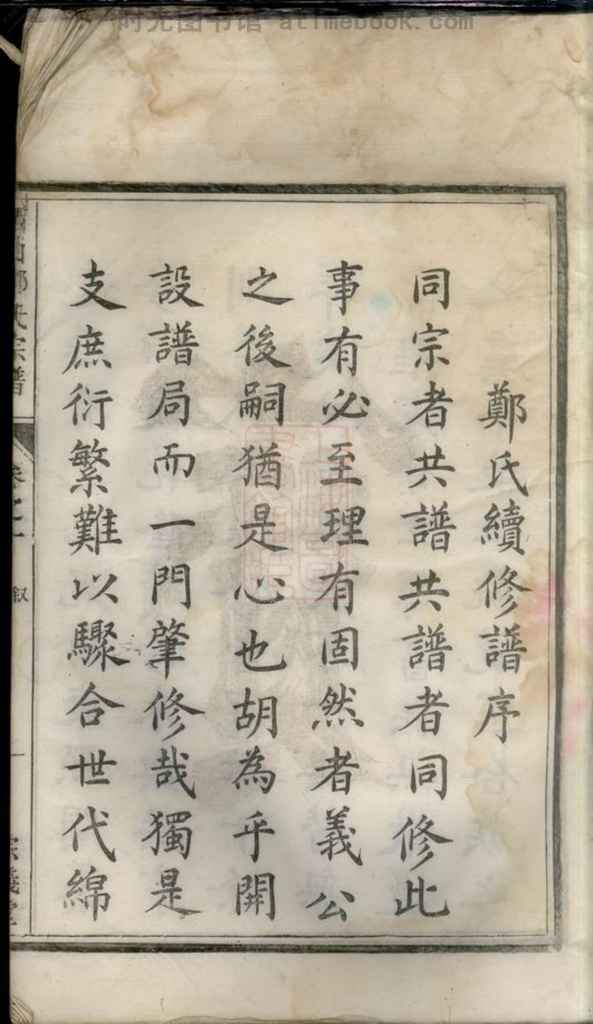 时光图书馆 - atimebook.com
鄭氏續修譜序
同宗者共譜共譜者同修此
事有必至理有固然者義公
之後嗣猶是心也胡為乎開
設譜局而一門肇修哉獨是
支庶衍繁難以驟合世代綿
氏宗譜
叙
一